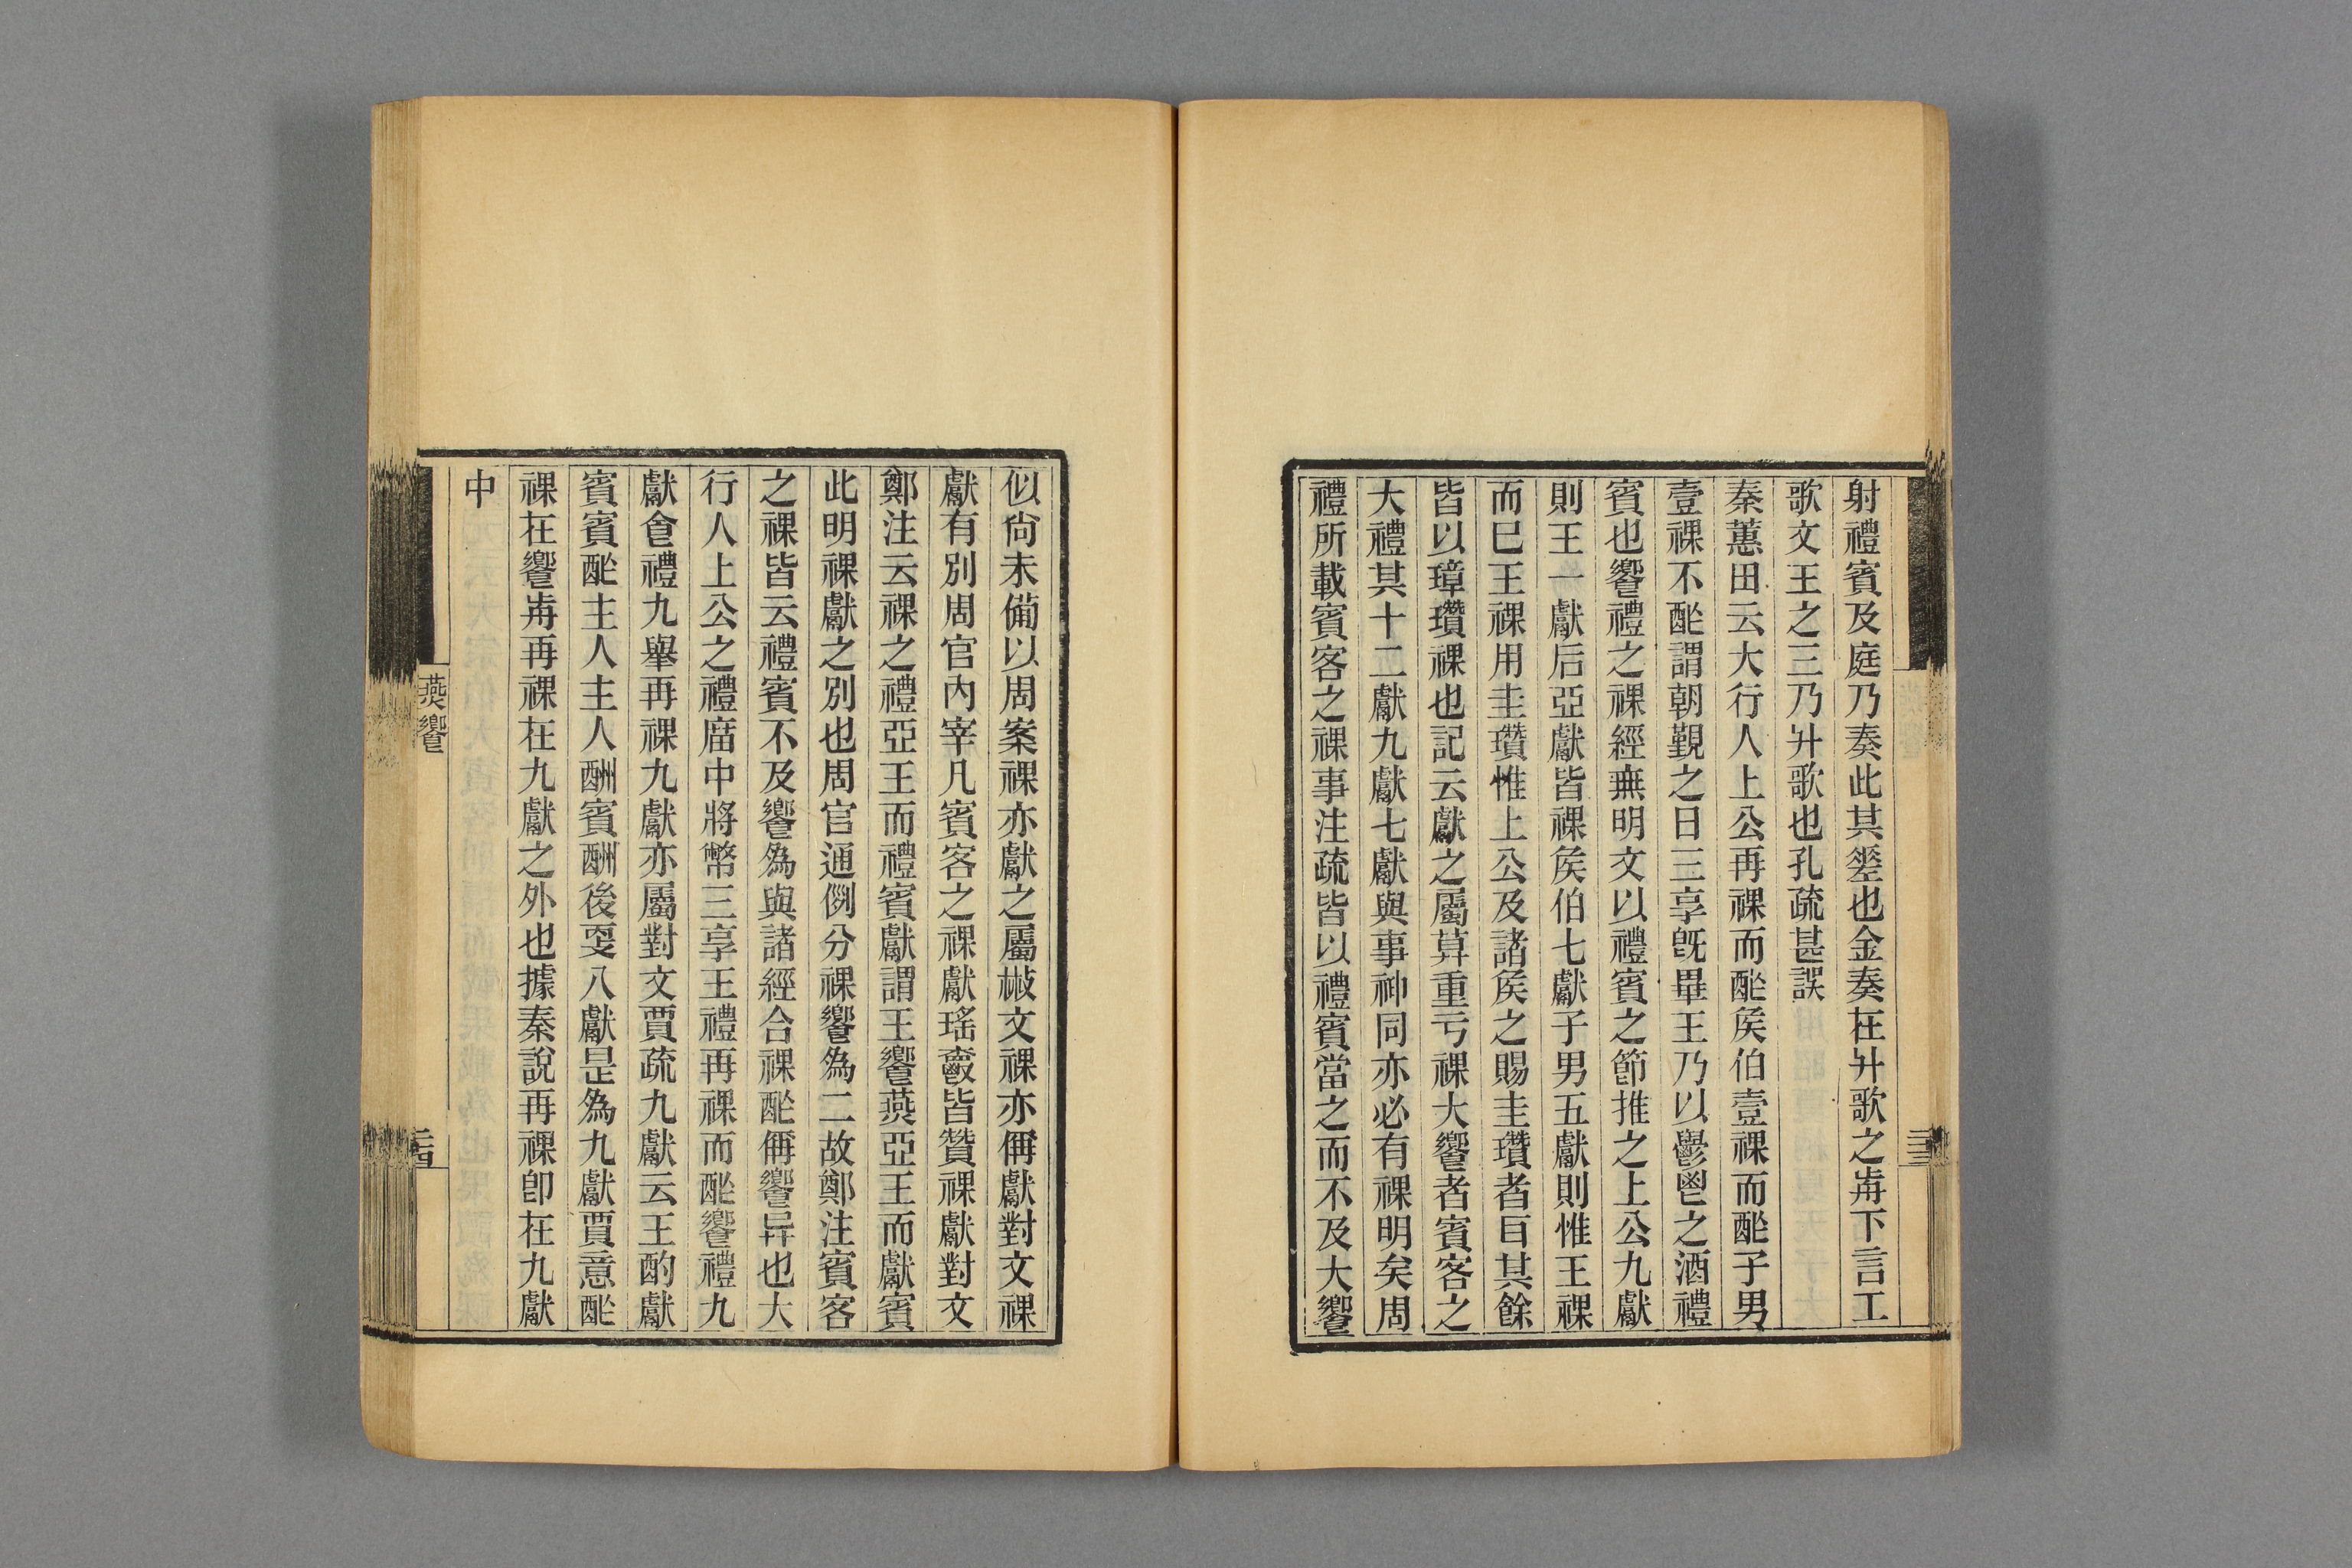 射禮賓及庭乃奏此其差也金奏在升歌之歬下言工
歌文王之三乃升歌也孔疏甚誤
秦蕙田云大行人上公再祼而酢矦伯壹祼而酢子男
壹祼不酢謂朝覲之日三享旣畢王乃以鬱鬯之酒禮
賓也饗禮之祼經無明文以禮賓之節推之上公九獻
則王一獻后亞獻皆祼矦伯七獻子男五獻則惟王祼
而已王祼用圭瓚惟上公及諸矦之賜圭瓚者㠯其餘
皆以璋瓚祼也記云獻之屬莫重亏祼大饗者賓客之
大禮其十二獻九獻七獻與事神同亦必有祼明矣周
禮所載賓客之祼事注疏皆以禮賓當之而不及大饗
似尙未備以周案祼亦獻之屬散文祼亦偁獻對文祼
獻有別周官內宰凡賓客之祼獻瑤爵皆贊祼獻對文
鄭注云祼之禮亞王而禮賓獻謂王饗燕亞王而獻賓
此明祼獻之別也周官通例分祼饗爲二故鄭注賓客
之祼皆云禮賓不及饗爲與諸經合祼酢偁饗异也大
行人上公之禮庿中將幣三享王禮再祼而酢饗禮九
獻食禮九舉再祼九獻亦屬對文賈疏九獻云王酌獻
賓賓酢主人主人酬賓酬後更八獻是爲九獻賈意酢
祼在饗歬再祼在九獻之外也據秦說再祼卽在九獻
中
燕饗
二四